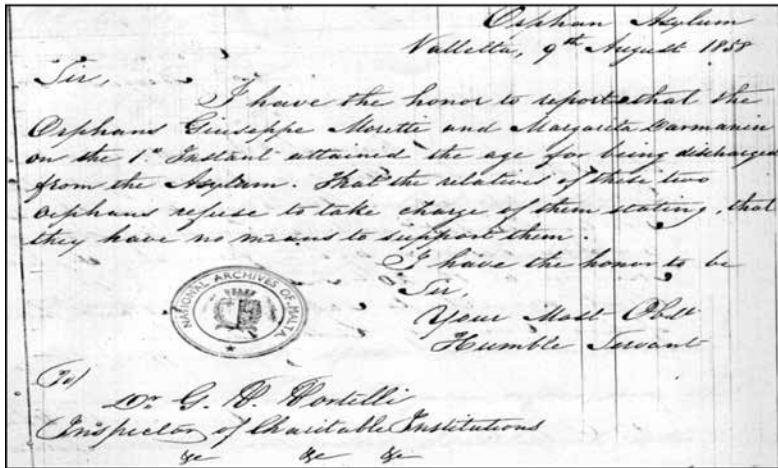 Orphan Asylum
Valletta, 9th August 1858
Sir,
I have the honor to report that the
Orphans Giuseppe Moretti and Margareta Darmanin
on the 1st Instant attained the age for being discharged
from the Asylum. That the relatives of these two
orphans refuse to take charge of them stating, that
they have no means to support them.
I have the honor to be
Sir
Your Most Obdt
Humble Servant
NATIONAL ARCHIVES OF MALTA
To/
Dr G. V.
Inspector of Charitable Institutions
&c &c &c